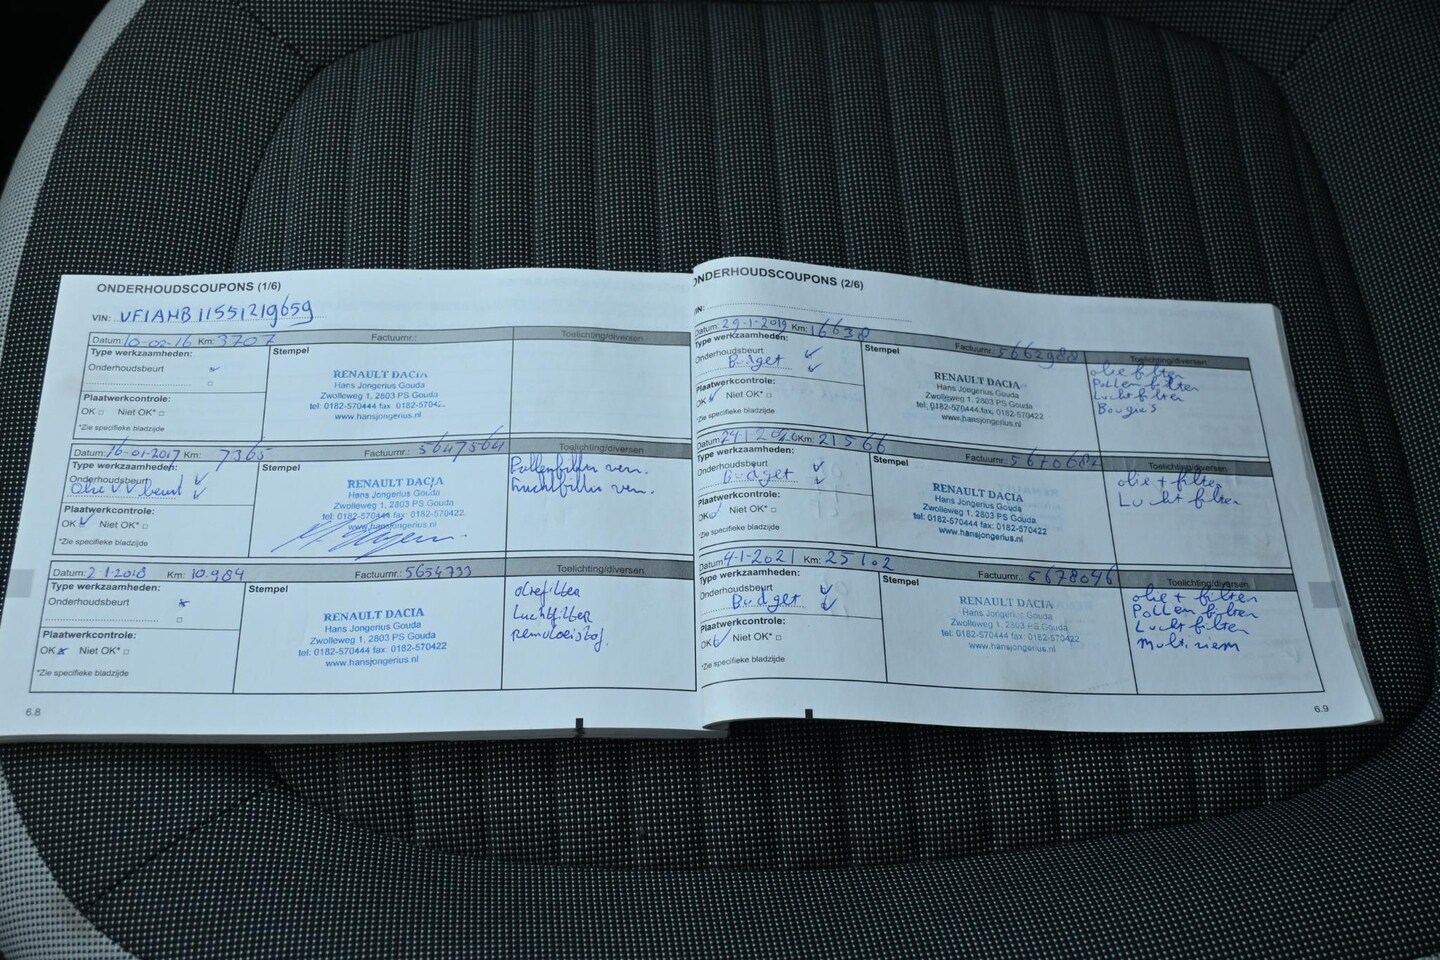 ONDERHOUDSCOUPONS (1/6)
VIN: VF1AHB11551219659
Datum: 10-02-16 Km: 3707 Factuurnr.: Toelichting/diversen
Type werkzaamheden: Stempel
Onderhoudsbeurt
Plaatwerkcontrole:
OK □ Niet OK* □
*Zie specifieke bladzijde
RENAULT DACIA
Hans Jongerius Gouda
Zwolleweg 1, 2803 PS Gouda
tel: 0182-570444 fax: 0182-570422
www.hansjongerius.nl
Datum: 16-01-2017 Km: 7365 Factuurnr.: 5647564 Toelichting/diversen
Type werkzaamheden: Stempel
Onderhoudsbeurt ✓
Olie VV beurt ✓
Plaatwerkcontrole:
OK ✓ Niet OK* □
*Zie specifieke bladzijde
RENAULT DACIA
Hans Jongerius Gouda
Zwolleweg 1, 2803 PS Gouda
tel: 0182-570444 fax: 0182-570422
www.hansjongerius.nl
Pollenfilter ver.
ver.
Datum: 2-1-2018 Km: 10.984 Factuurnr.: 5654733 Toelichting/diversen
Type werkzaamheden: Stempel
Onderhoudsbeurt x
Plaatwerkcontrole:
OK x Niet OK* □
*Zie specifieke bladzijde
RENAULT DACIA
Hans Jongerius Gouda
Zwolleweg 1, 2803 PS Gouda
tel: 0182-570444 fax: 0182-570422
www.hansjongerius.nl
oliefilter
Luchtfilter
remvloeistof.
6.8
ONDERHOUDSCOUPONS (2/6)
Datum: 29-1-2019 Km: 16638 Factuurnr.: 5662988 Toelichting/diversen
Type werkzaamheden: Stempel
Onderhoudsbeurt ✓
Budget ✓
Plaatwerkcontrole:
OK ✓ Niet OK* □
*Zie specifieke bladzijde
RENAULT DACIA
Hans Jongerius Gouda
Zwolleweg 1, 2803 PS Gouda
tel: 0182-570444 fax: 0182-570422
www.hansjongerius.nl
olie filter
Pollen filter
Lucht filter
Bougies
Datum: Km: 21566 Factuurnr.: 5670682 Toelichting/diversen
Type werkzaamheden: Stempel
Onderhoudsbeurt ✓
Budget ✓
Plaatwerkcontrole:
OK ✓ Niet OK* □
*Zie specifieke bladzijde
RENAULT DACIA
Hans Jongerius Gouda
Zwolleweg 1, 2803 PS Gouda
tel: 0182-570444 fax: 0182-570422
www.hansjongerius.nl
olie + filter
Lucht filter
Datum: 4-1-2021 Km: 25102 Factuurnr.: 5678046 Toelichting/diversen
Type werkzaamheden: Stempel
Onderhoudsbeurt ✓
Budget ✓
Plaatwerkcontrole:
OK ✓ Niet OK* □
*Zie specifieke bladzijde
RENAULT DACIA
Hans Jongerius Gouda
Zwolleweg 1, 2803 PS Gouda
tel: 0182-570444 fax: 0182-570422
www.hansjongerius.nl
olie + filter
Pollen filter
Lucht filter
Multi riem
6.9